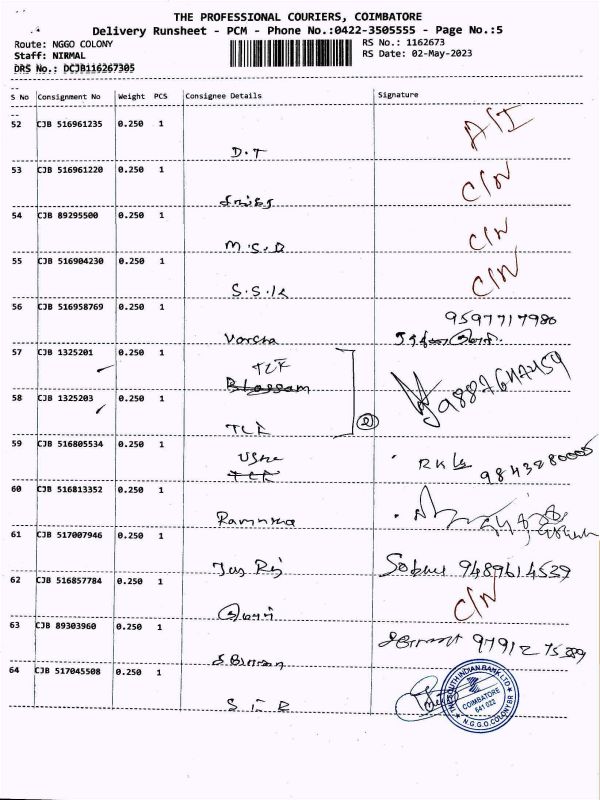 THE PROFESSIONAL COURIERS, COIMBATORE
Delivery Runsheet - PCM - Phone No.:0422-3505555 - Page No.:5
Route: NGGO COLONY
RS No.: 1162673
Staff: NIRMAL
RS Date: 02-May-2023
DRS No.: DCJB116267305
S No Consignment No Weight PCS Consignee Details Signature
52 CJB 516961235 0.250 1
A/I
D.T
53 CJB 516961220 0.250 1
C/N
54 CJB 89295500 0.250 1
C/N
M.S.D
55 CJB 516904230 0.250 1
C/N
S.S.K
56 CJB 516958769 0.250 1
9597717980
Varsha
57 CJB 1325201 0.250 1
TCF
Blossam
58 CJB 1325203 0.250 1
2
59 CJB 516805534 0.250 1
9843280005
60 CJB 516813352 0.250 1
61 CJB 517007946 0.250 1
9489614539
62 CJB 516857784 0.250 1
C/N
63 CJB 89303960 0.250 1
97912 75299
64 CJB 517045508 0.250 1
THE SOUTH INDIAN BANK LTD
COIMBATORE
641 022
N.G.G.O. COLONY BR